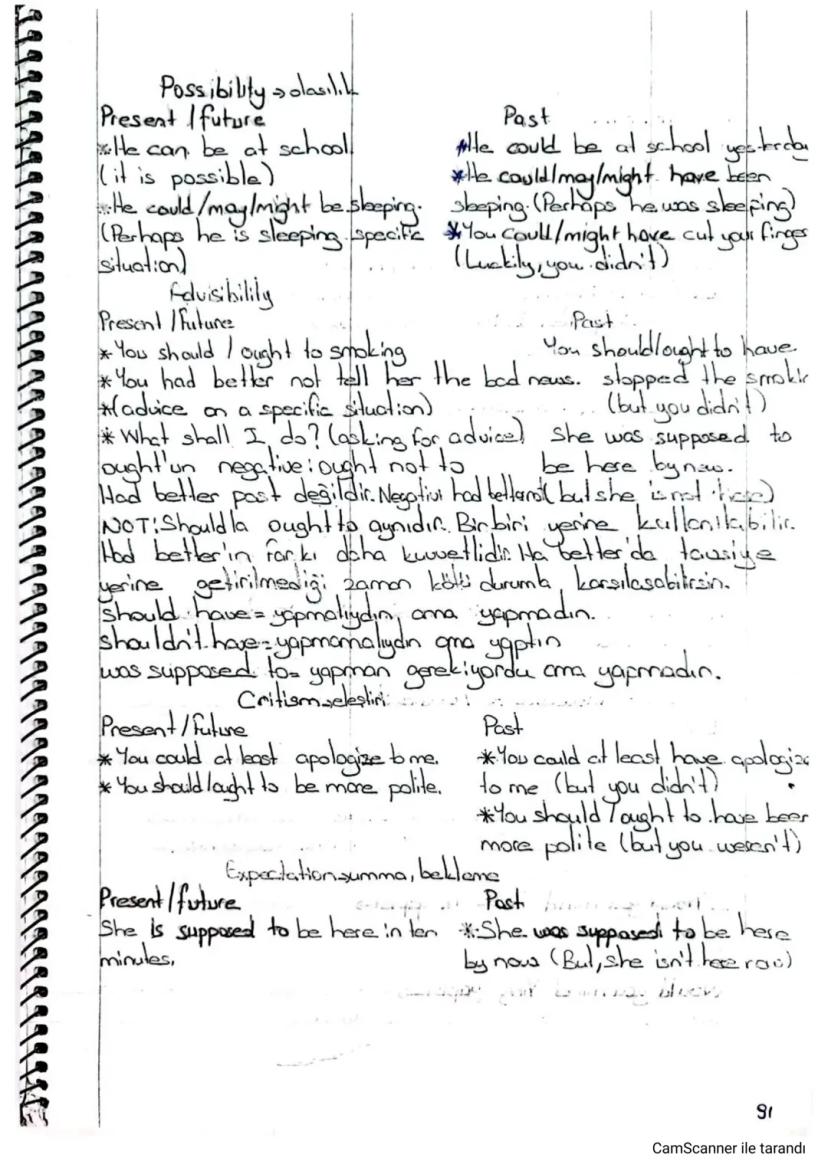 Possibility → olasılık
Present / future
Past
*He can be at school
(it is possible)
*He could/may/might be sleeping.
(Perhaps he is sleeping specific
situation)
*He could be at school yesterday
*He could/may/might have been
sleeping. (Perhaps he was sleeping)
*You could/might have cut your finger
(Luckily, you didn't)
Advisibility
Present / Future
Past
* You should / ought to smoking
* You had better not tell her the bad news.
*(advice on a specific situation)
* What shall I do? (asking for advice)
You should/ought to have
stopped the
(but you didn't)
She was supposed to
be here by now.
(but she is not here)
ought'un negative: ought not to
Had better past değildir. Negativi had better not
NOT: Should'la ought to aynıdır. Birbiri yerine kullanılabilir.
Had better'in farkı daha kuvvetlidir. Ha better'da tavsiye
yerine getirilmediği zaman kötü durumla karşılaşabilirsin.
should have = yapmalıydın, ama yapmadın.
shouldn't have = yapmamalıydın ama yaptın
was supposed to = yapman gerekiyordu ama yapmadın.
Critism → eleştiri
Present / Future
Past
* You could at least apologize to me.
* You should/ought to be more polite.
* You could at least have apologize
to me (but you didn't)
* You should / ought to have been
more polite (but you weren't)
Expectation → umma, bekleme
Present / future
Past
She is supposed to be here in ten
minutes.
* She was supposed to be here
by now (But, she isn't here now)
91
CamScanner ile tarandı